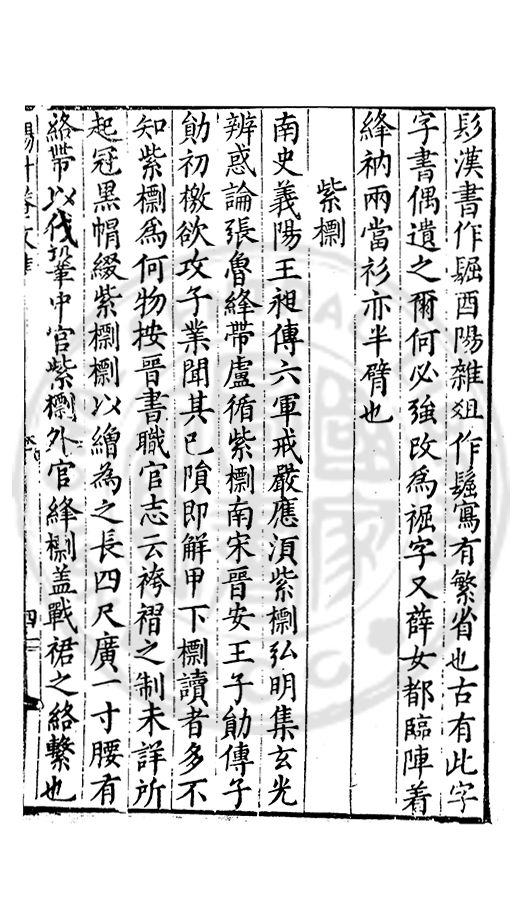 髟漢書作䯌酉陽雜俎作䯌寫有繁省也古有此字
字書偶遺之爾何必強改爲裾字又薛女都臨陣着
絳衲兩當衫亦半臂也
紫㯹
南史義陽王昶傳六軍戒嚴應湏紫㯹弘明集玄光
辨惑論張魯絳帶盧循紫㯹南宋晉安王子勛傳子
勛初檄欲攻子業聞其已隕即解甲下㯹讀者多不
知紫㯹爲何物按晉書職官志云袴褶之制未詳所
起冠黑帽綴紫㯹㯹以繒為之長四尺廣一寸腰有
絡帶以代鞶中官紫㯹外官絳㯹盖戰裙之絡繫也
四